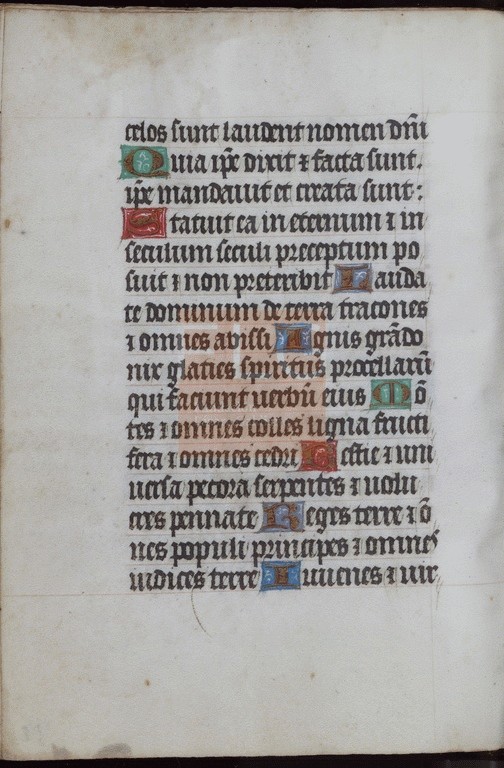 celos sunt laudent nomen dn̄i
Quia ip̄e dixit ⁊ facta sunt.
ip̄e mandauit et creata sunt:
Statuit ea in eternum ⁊ in
seculum seculi preceptum po
suit ⁊ non preteribit Lauda
te dominum de terra tracones
⁊ omnes abissi Ignis grādo
nix glaties spiritus procellarū
qui faciunt uerbū eius Mō
tes ⁊ omnes colles ligna fructi
fera ⁊ omnes cedri Bestie ⁊ uni
uersa pecora serpentes ⁊ uolu
cres pennate Reges terre ⁊ ō
nes populi principes ⁊ omnes
iudices terre Iuuenes ⁊ uir